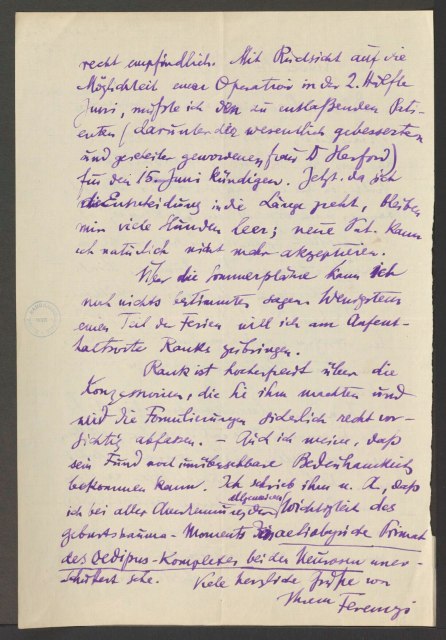 recht empfindlich. Mit Rücksicht auf die
Möglichkeit einer Operation in der 2. Hälfte
Juni, mußte ich den zu entlaßenden Pati-
enten (darunter der wesentlich gebesserten
und gescheiter gewordenen Frau D Herford)
für den 15. Juni kündigen. Jetzt, da sich
die Entscheidung in die Länge zieht, bleiben
mir viele Stunden leer; neue Pat. kann
ich natürlich nicht mehr akzeptieren.
Über die Sommerpläne kann ich
noch nichts bestimmtes sagen. Wenigstens
einen Teil der Ferien will ich am Aufent-
haltsorte Ranks zubringen.
Rank ist hocherfreut über die
Konzessionen, die Sie ihm machten und
wird die Formulierungen sicherlich recht vor-
sichtig abfassen. – Auch ich meine, daß
sein Fund noch unübersehbare Bedeutsamkeit
bekommen kann. Ich schrieb ihm u. A, daß
ich bei aller Anerkennung der allgemeinen Wichtigkeit des
Geburtstrauma-Moments das aetiologische Primat
des Oedipus-Komplexes bei den Neurosen uner-
schüttert sehe.
Viele herzliche Grüße von
Ihrem Ferenczi